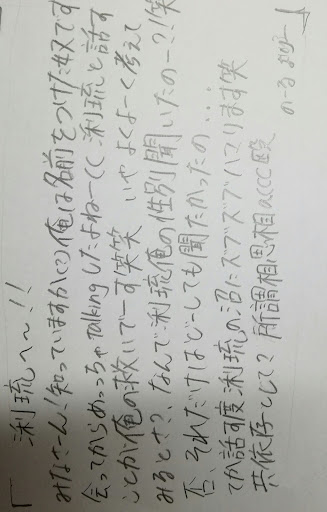 「浰琉へ〜!!
みなさーん!知っていますか(?)俺は名前をつけた奴です
会ってからめっっちゃtalkingしたよねーくく 浰琉と話す
ことが俺の救いでーす笑笑 いやよくよーく考えて
みるとさ?、なんで浰琉俺の性別聞いたのー?!笑
否、それだけはどーしても聞たかったの...
てか話す度浰琉の沼にズブズブハマります笑
共依存として?所謂相思相a(((殴
のーるより」